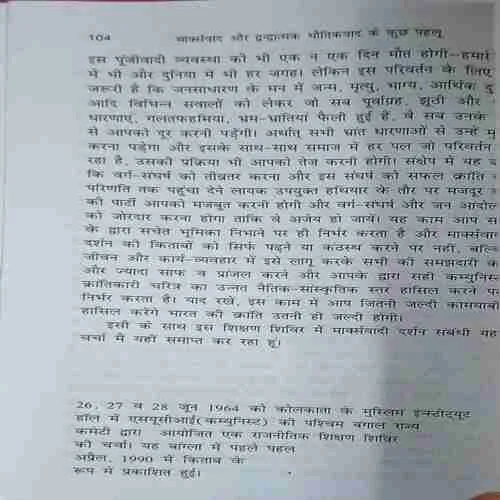 104 मार्क्सवाद और द्वन्द्वात्मक भौतिकवाद के कुछ पहलू
इस पूंजीवादी व्यवस्था की भी एक न एक दिन मौत होगी–हमारे
में भी और दुनिया में भी हर जगह। लेकिन इस परिवर्तन के लिए
जरूरी है कि जनसाधारण के मन में जन्म, मृत्यु, भाग्य, आर्थिक
आदि विभिन्न सवालों को लेकर जो सब पूर्वाग्रह, झूठी और
धारणाएं, गलतफहमियां, भ्रम-भ्रांतियां फैली हुई हैं, वे सब उनके
से आपको दूर करनी पड़ेंगी। अर्थात् सभी भ्रांत धारणाओं से उन्हें
करना पड़ेगा और इसके साथ-साथ समाज में हर पल जो परिवर्तन
रहा है, उसकी प्रक्रिया भी आपको तेज करनी होगी। संक्षेप में यह
कि वर्ग-संघर्ष को तीव्रतर करना और इस संघर्ष को सफल क्रांति
परिणति तक पहुंचा देने लायक उपयुक्त हथियार के तौर पर मजदूर
की पार्टी आपको मजबूत करनी होगी और वर्ग-संघर्ष और जन
को जोरदार करना होगा ताकि वे अजेय हो जायें। यह काम आप
के द्वारा सचेत भूमिका निभाने पर ही निर्भर करता है और
दर्शन की किताबों को सिर्फ पढ़ने या कंठस्थ करने पर नहीं,
जीवन और कार्य-व्यवहार में इसे लागू करके सभी की समझदारी
और ज्यादा साफ व प्रांजल करने और आपके द्वारा सही
क्रांतिकारी चरित्र का उन्नत नैतिक-सांस्कृतिक स्तर हासिल करने
निर्भर करता है। याद रखें, इस काम में आप जितनी जल्दी कामयाबी
हासिल करेंगे भारत की क्रांति उतनी ही जल्दी होगी।
इसी के साथ इस शिक्षण शिविर में मार्क्सवादी दर्शन संबंधी यह
चर्चा मैं यहीं समाप्त कर रहा हूं।
26, 27 व 28 जून 1964 को कोलकाता के मुस्लिम इन्स्टीट्यूट
हॉल में एसयूसीआई(कम्युनिस्ट) की पश्चिम बंगाल राज्य
कमेटी द्वारा आयोजित एक राजनीतिक शिक्षण शिविर
की चर्चा। यह बांग्ला में पहले पहल
अप्रैल, 1990 में किताब के
रूप में प्रकाशित हुई।